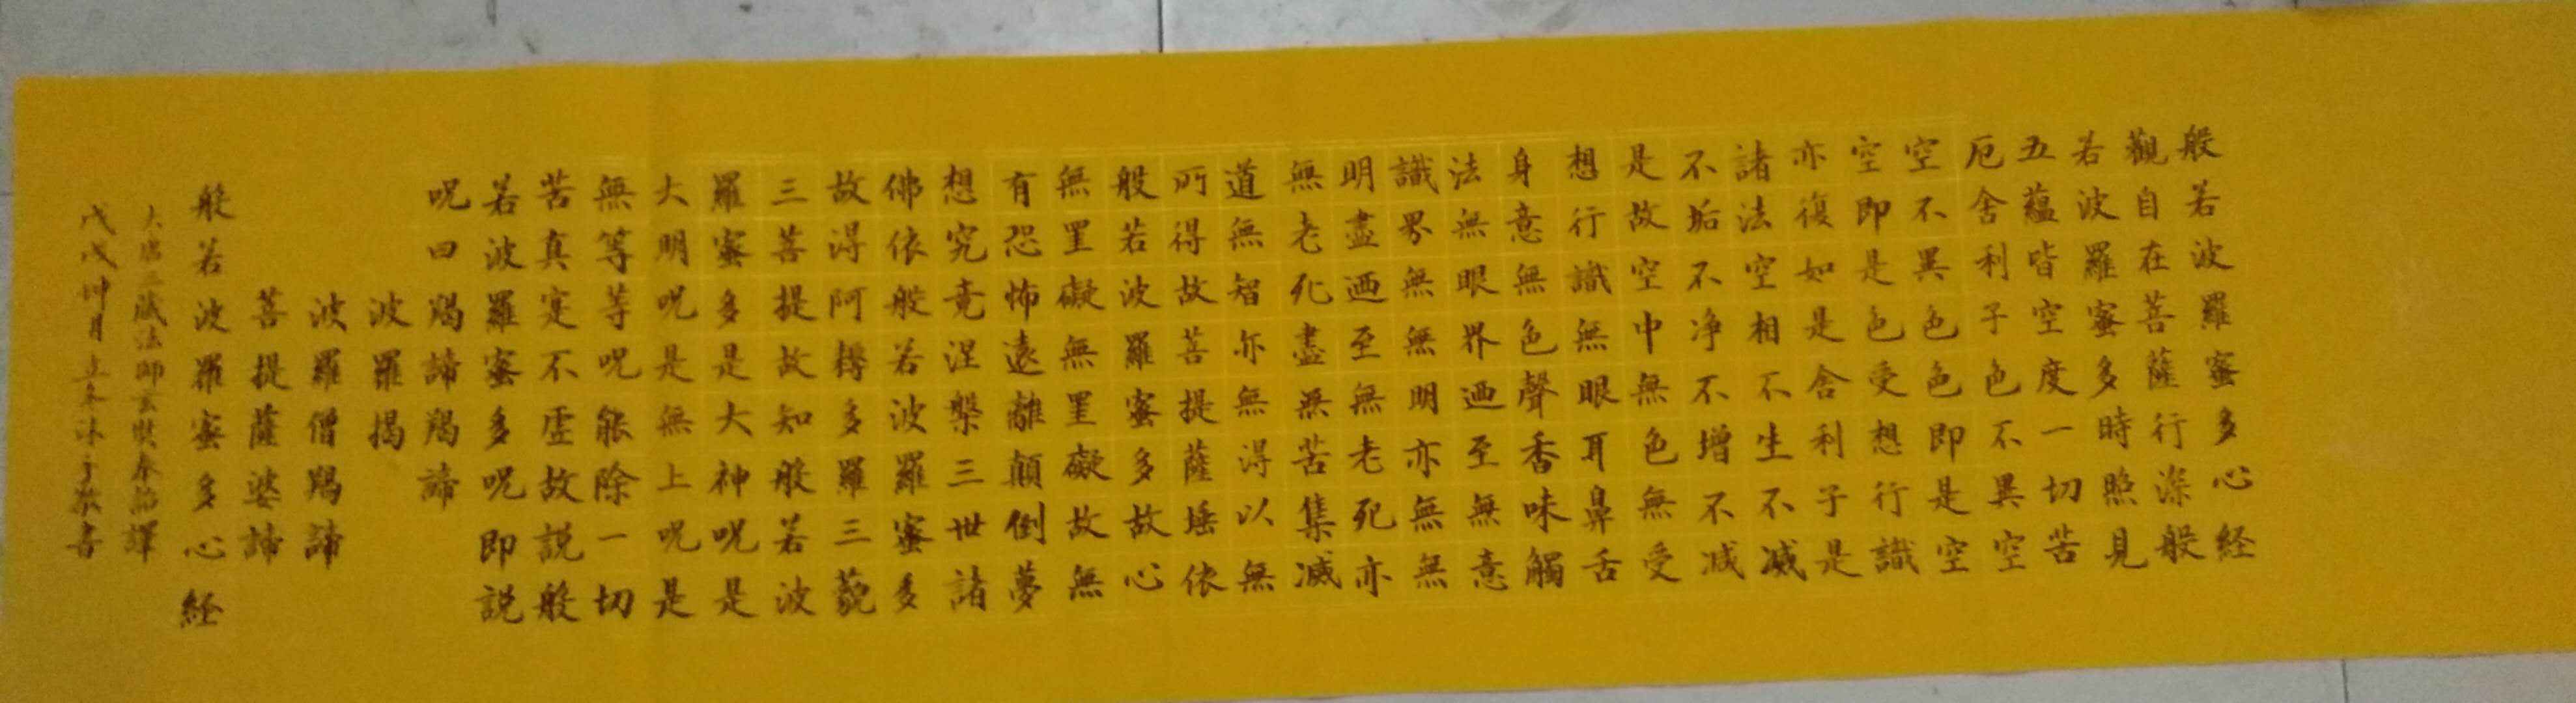 般若波羅蜜多心経
觀自在菩薩行深般
若波羅蜜多時照見
五蘊皆空度一切苦
厄舍利子色不異空
空不異色色即是空
空即是色受想行識
亦復如是舍利子是
諸法空相不生不滅
不垢不净不增不减
是故空中無色無受
想行識無眼耳鼻舌
身意無色聲香味觸
法無眼界迺至無意
識界無無明亦無無
明盡迺至無老死亦
無老死盡無苦集滅
道無智亦無得以無
所得故菩提薩埵依
般若波羅蜜多故心
無罣礙無罣礙故無
有恐怖遠離顛倒夢
想究竟涅槃三世諸
佛依般若波羅蜜多
故得阿耨多羅三藐
三菩提故知般若波
羅蜜多是大神呪是
大明呪是無上呪是
無等等呪能除一切
苦真寔不虛故説般
若波羅蜜多呪即説
呪曰揭諦揭諦
波羅揭
波羅僧揭諦
菩提薩婆諦
般若波羅蜜多心経
大唐三藏法師玄奘奉詔譯
戊戌坤月立冬沐手敬書